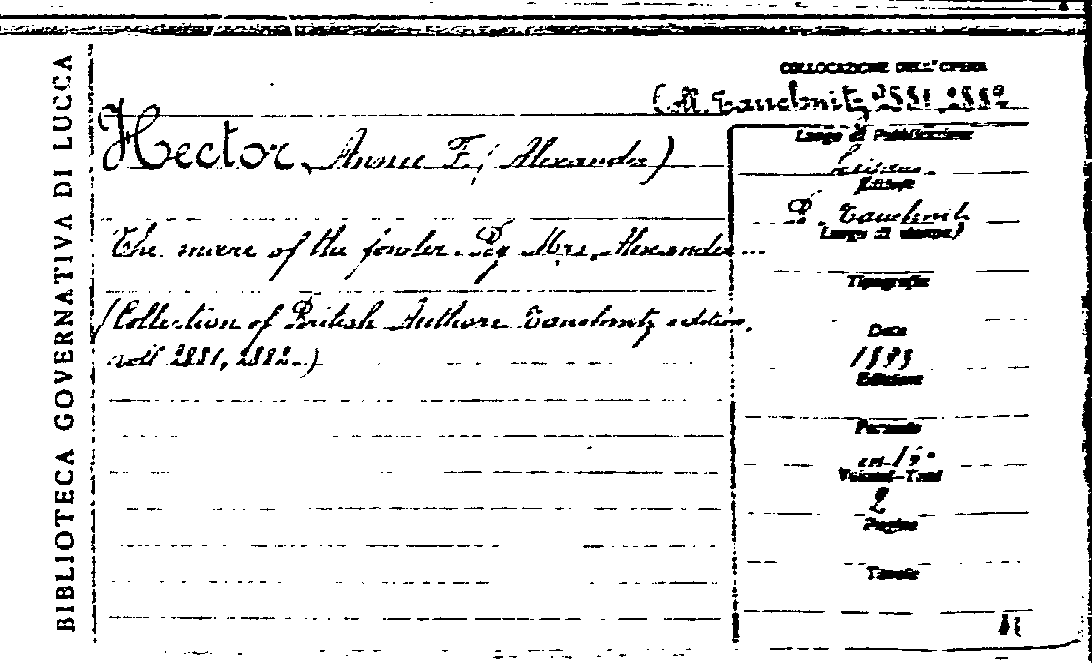 BIBLIOTECA GOVERNATIVA DI LUCCA
COLLOCAZIONE DELL'OPERA
Coll. Tauchnitz 2881, 2882
Hector, Annie F. (Alexander)
The snare of the fowler. By Mrs. Alexander...
(Collection of British Authors Tauchnitz edition,
voll 2881, 2882.)
Luogo di Pubblicazione
Editore
B. Tauchnitz
(Luogo di stampa)
Tipografia
Data
1893
Edizione
Formato
in-16°
Volumi-Tomi
2
Pagine
Tavole